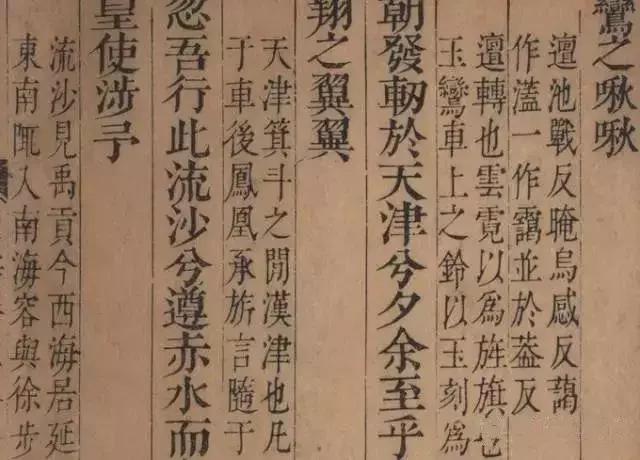 鸞之啾啾
邅池戰反晻烏感反藹
作濭一作靄並於葢反
邅轉也雲霓以爲旌旗也
玉鸞車上之鈴以玉刻爲
朝發軔於天津兮夕余至乎
翔之翼翼
天津箕斗之閒漢津也凡
于車後鳳凰承旂言隨于
忽吾行此流沙兮遵赤水而
皇使涉予
流沙見禹貢今西海居延
東南陬入南海容與徐步